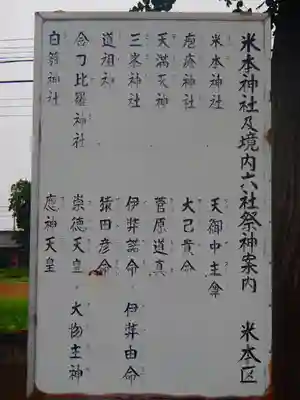 米本神社及境内六社祭神案内 米本区
米本神社 天御中主尊
疱瘡神社 大己貴命
天満天神 菅原道真
三峯神社 伊弉諾命・伊弉冉命
道祖神 猿田彦命
金刀比羅神社 崇徳天皇・大物主神
白幡神社 應神天皇